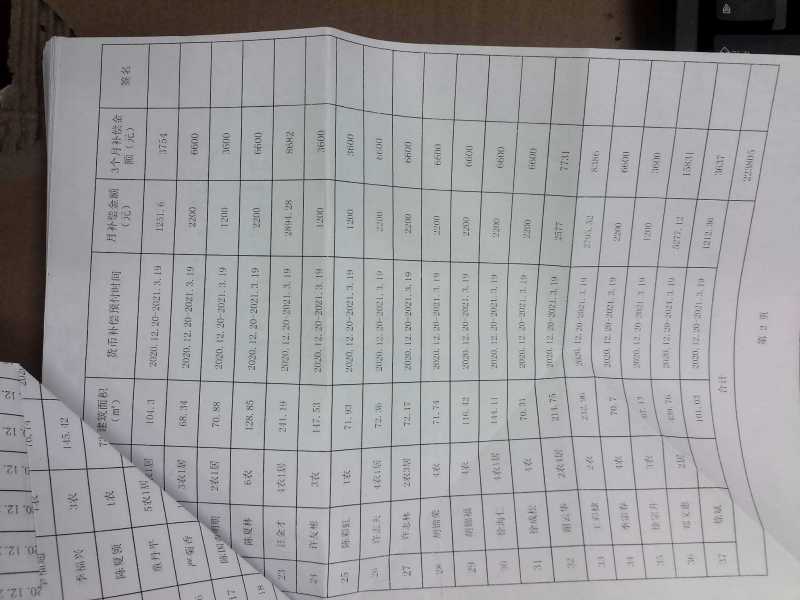 建筑面积（㎡） 货币补偿预付时间 月补偿金额（元） 3个月补偿金额（元） 签名
李福兴 3农 145.42
陈夏领 1农
童丹平 5农1居 104.3 2020.12.20-2021.3.19 1251.6 3754
严菊香 3农1居 68.34 2020.12.20-2021.3.19 2200 6600
2农1居 70.88 2020.12.20-2021.3.19 1200 3600
陈夏林 6农 128.85 2020.12.20-2021.3.19 2200 6600
23 汪金才 4农1居 241.19 2020.12.20-2021.3.19 2894.28 8682
24 许友彬 3农 147.53 2020.12.20-2021.3.19 1200 3600
25 陈彩虹 1农 71.93 2020.12.20-2021.3.19 1200 3600
26 4农1居 72.36 2020.12.20-2021.3.19 2200 6600
27 许志林 2农3居 72.17 2020.12.20-2021.3.19 2200 6600
28 胡锦荣 4农 71.74 2020.12.20-2021.3.19 2200 6600
29 胡锦福 4农 116.42 2020.12.20-2021.3.19 2200 6600
30 徐海仁 4农1居 144.11 2020.12.20-2021.3.19 2200 6600
31 徐成松 4农 70.31 2020.12.20-2021.3.19 2200 6600
32 谢云华 214.75 2020.12.20-2021.3.19 2577 7731
33 2农 232.96 2020.12.20-2021.3.19 2795.52 8386
34 李宗春 4农 70.7 2020.12.20-2021.3.19 2200 6600
35 徐宗升 3农 67.17 2020.12.20-2021.3.19 1200 3600
36 郑文德 2居 439.76 2020.12.20-2021.3.19 5277.12 15831
37 徐斌 101.03 2020.12.20-2021.3.19 1212.36 3637
合计 223805
第 2 页